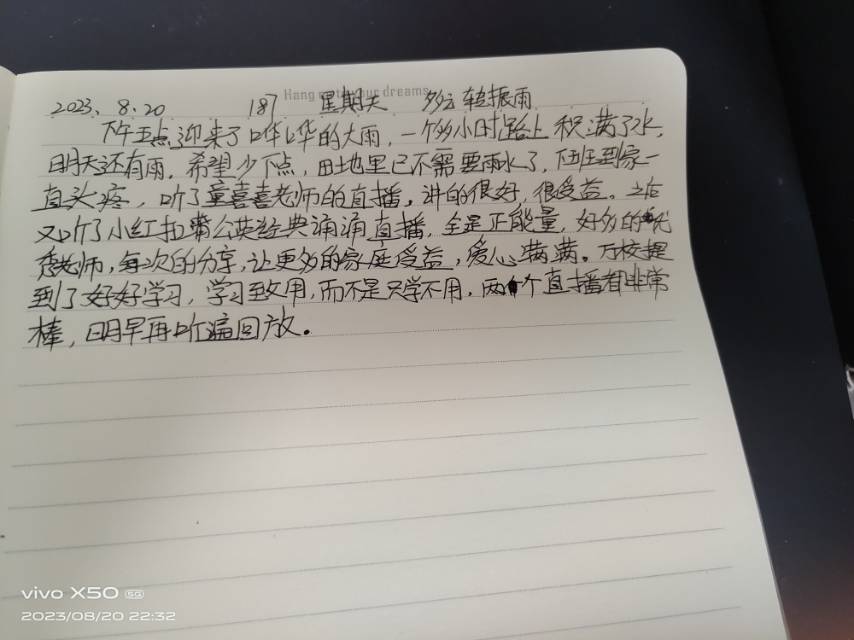 Hang on to your dreams
2023、8、20 187 星期天 多云转振雨
下午五点迎来了哗哗的大雨，一个多小时路上积满了水，
明天还有雨，希望少下点，田地里已不需要雨水了，下班到家一
直头疼，听了童喜喜老师的直播，讲的很好，很受益。之后
又听了小红拉蒲公英经典诵涌直播，全是正能量，好多的优
秀老师，每次的分享，让更多的家庭受益，爱心满满。万校提
到了好好学习，学习致用，而不是只学不用，两个直播都非常
棒，明早再听遍回放。
vivo X50 5G
2023/08/20 22:32